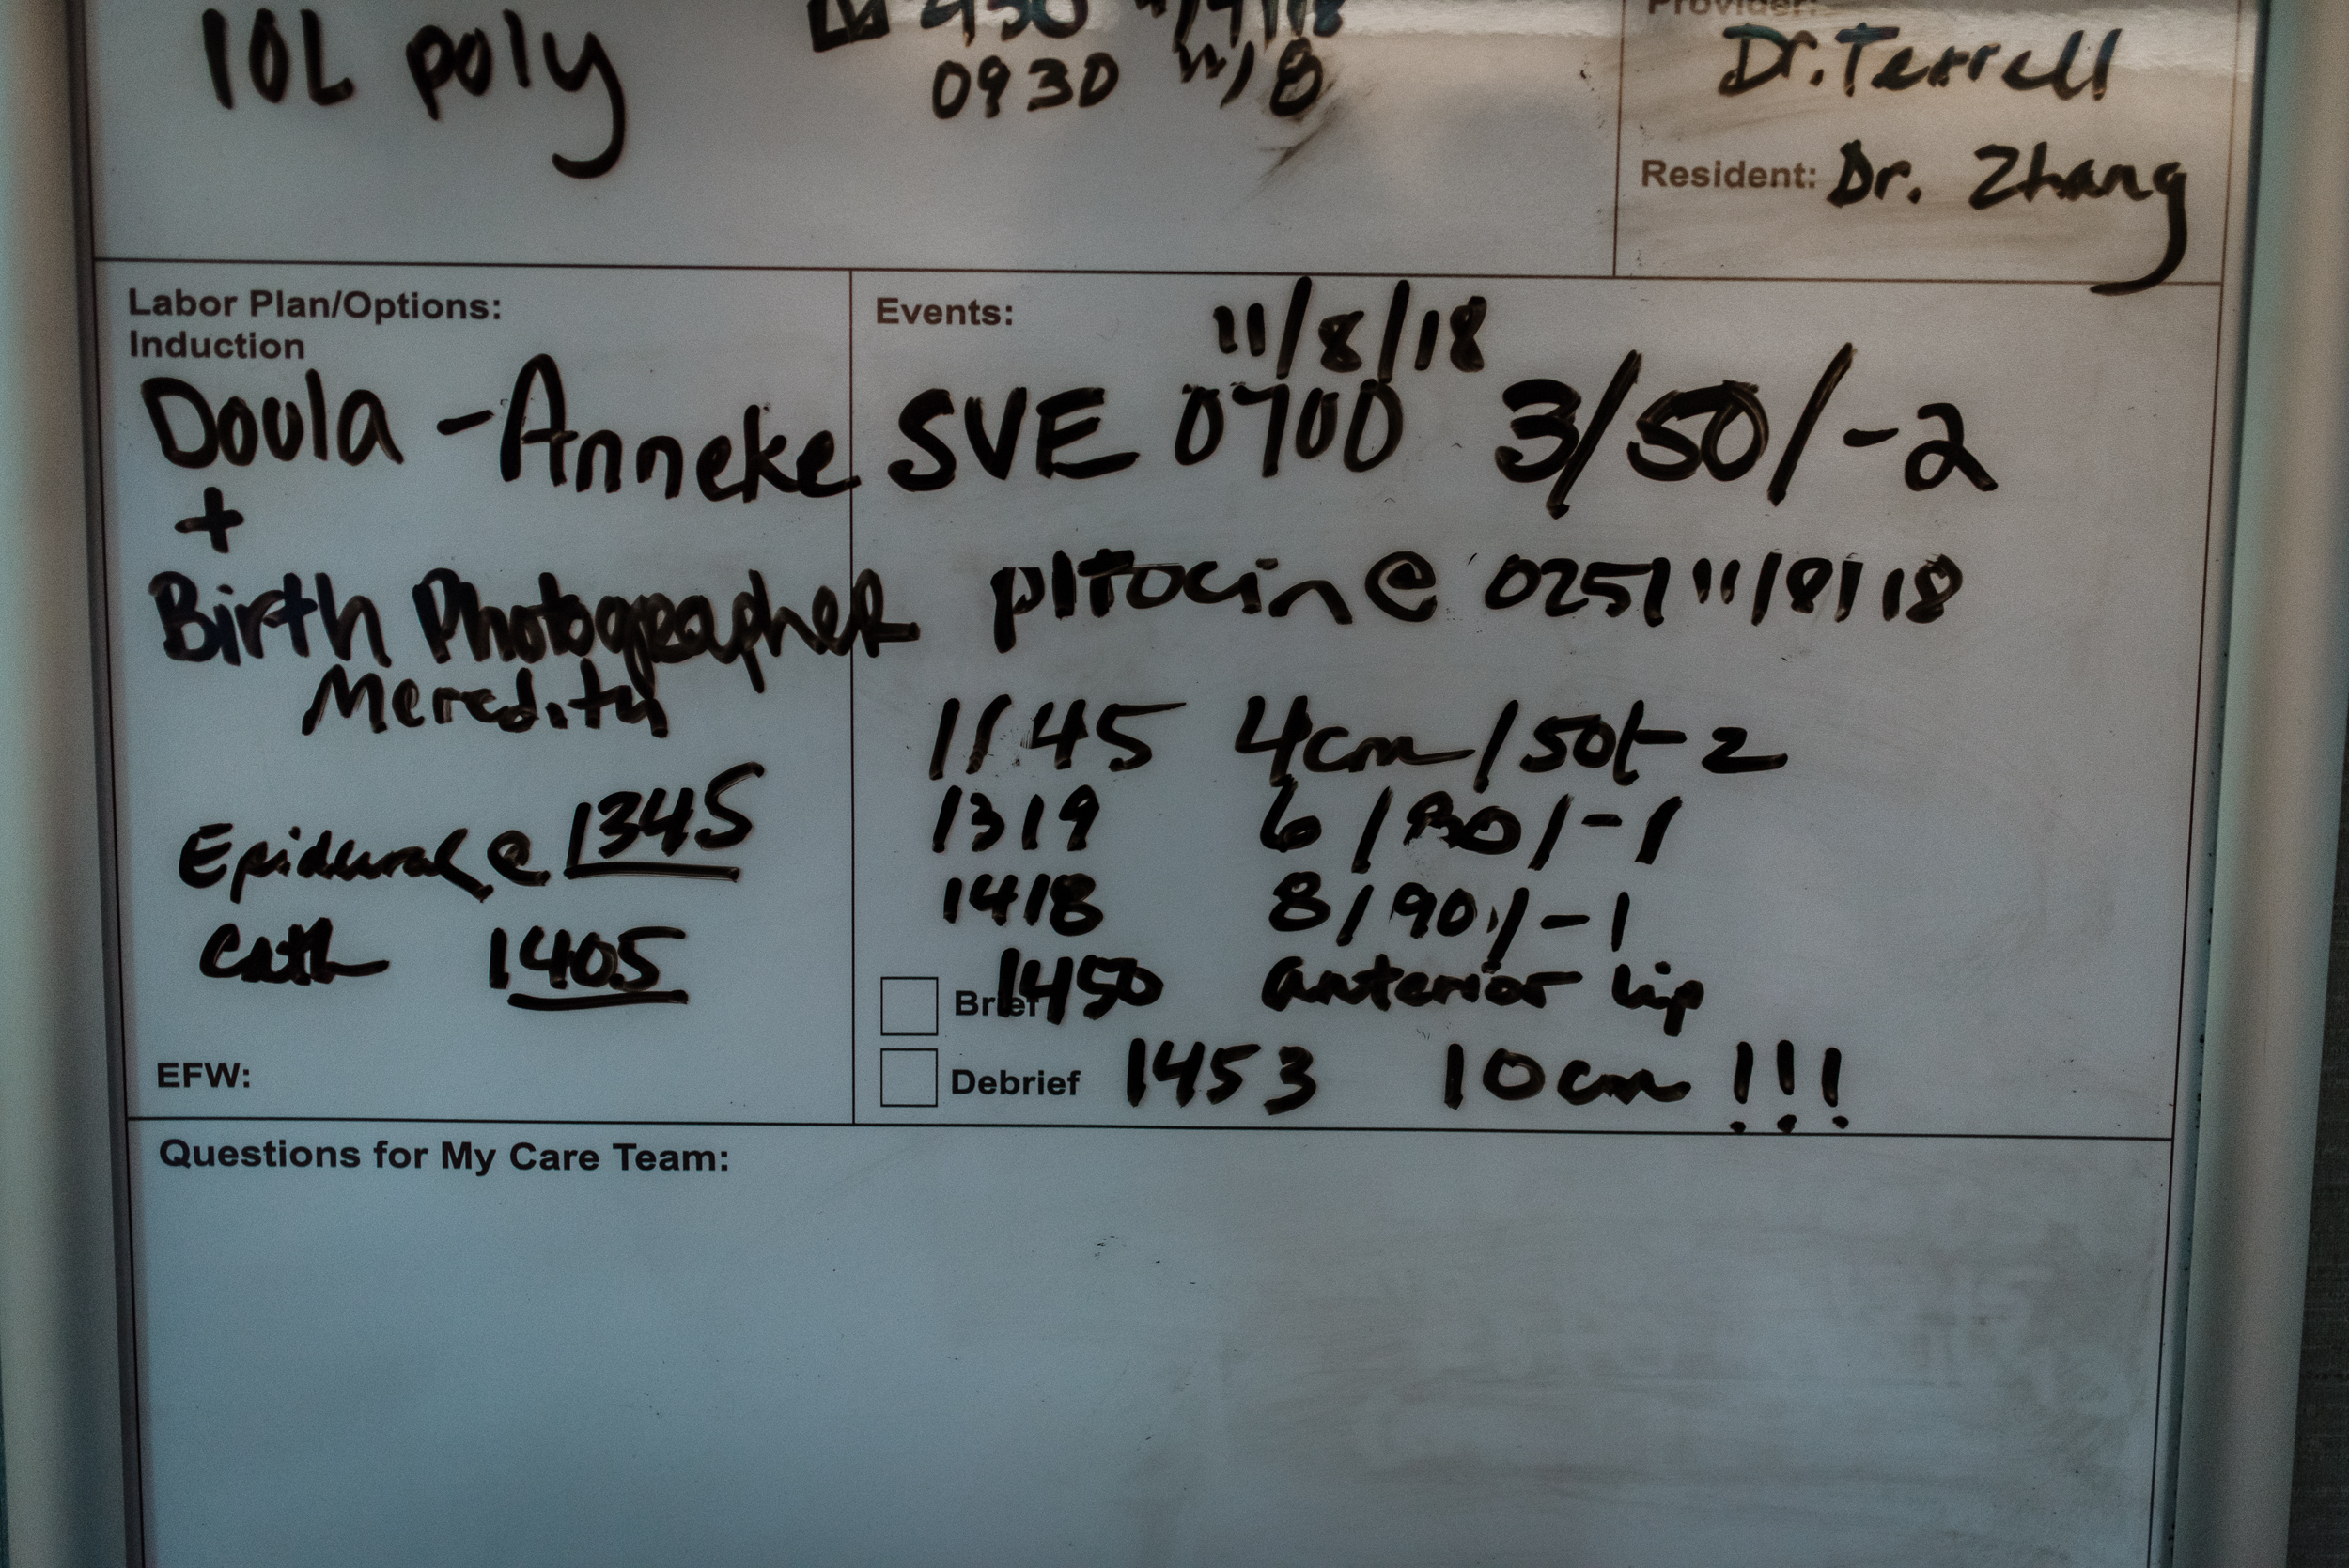 IOL poly
0930 11/8
Provider:
Dr. Terrell
Resident: Dr. Zhang
Labor Plan/Options:
Induction
Doula - Anneke
+
Birth Photographer
Meredith
Epidural @ 1345
Cath 1405
EFW:
Events:
11/8/18
SVE 0700 3/50/-2
pitocin @ 0251 11/8/18
1145 4cm/50/-2
1319 6/80/-1
1418 8/90/-1
Brief 1450 anterior lip
Debrief 1453 10cm !!!
Questions for My Care Team: